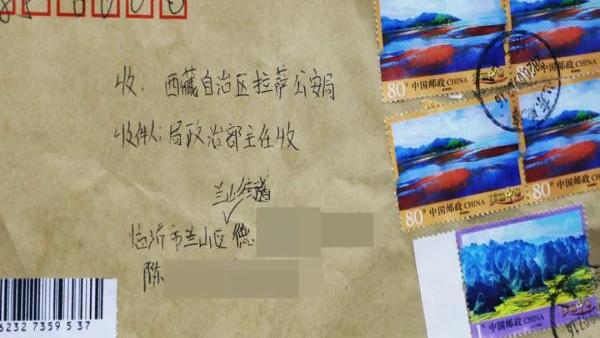 收：西藏自治区拉萨公安局
收件人：局政治部主任收
兰山街道
临沂市兰山区德
陈
80分 中国邮政 CHINA
80分 中国邮政 CHINA
80分 中国邮政 CHINA
中国邮政 CHINA
6232735953 7